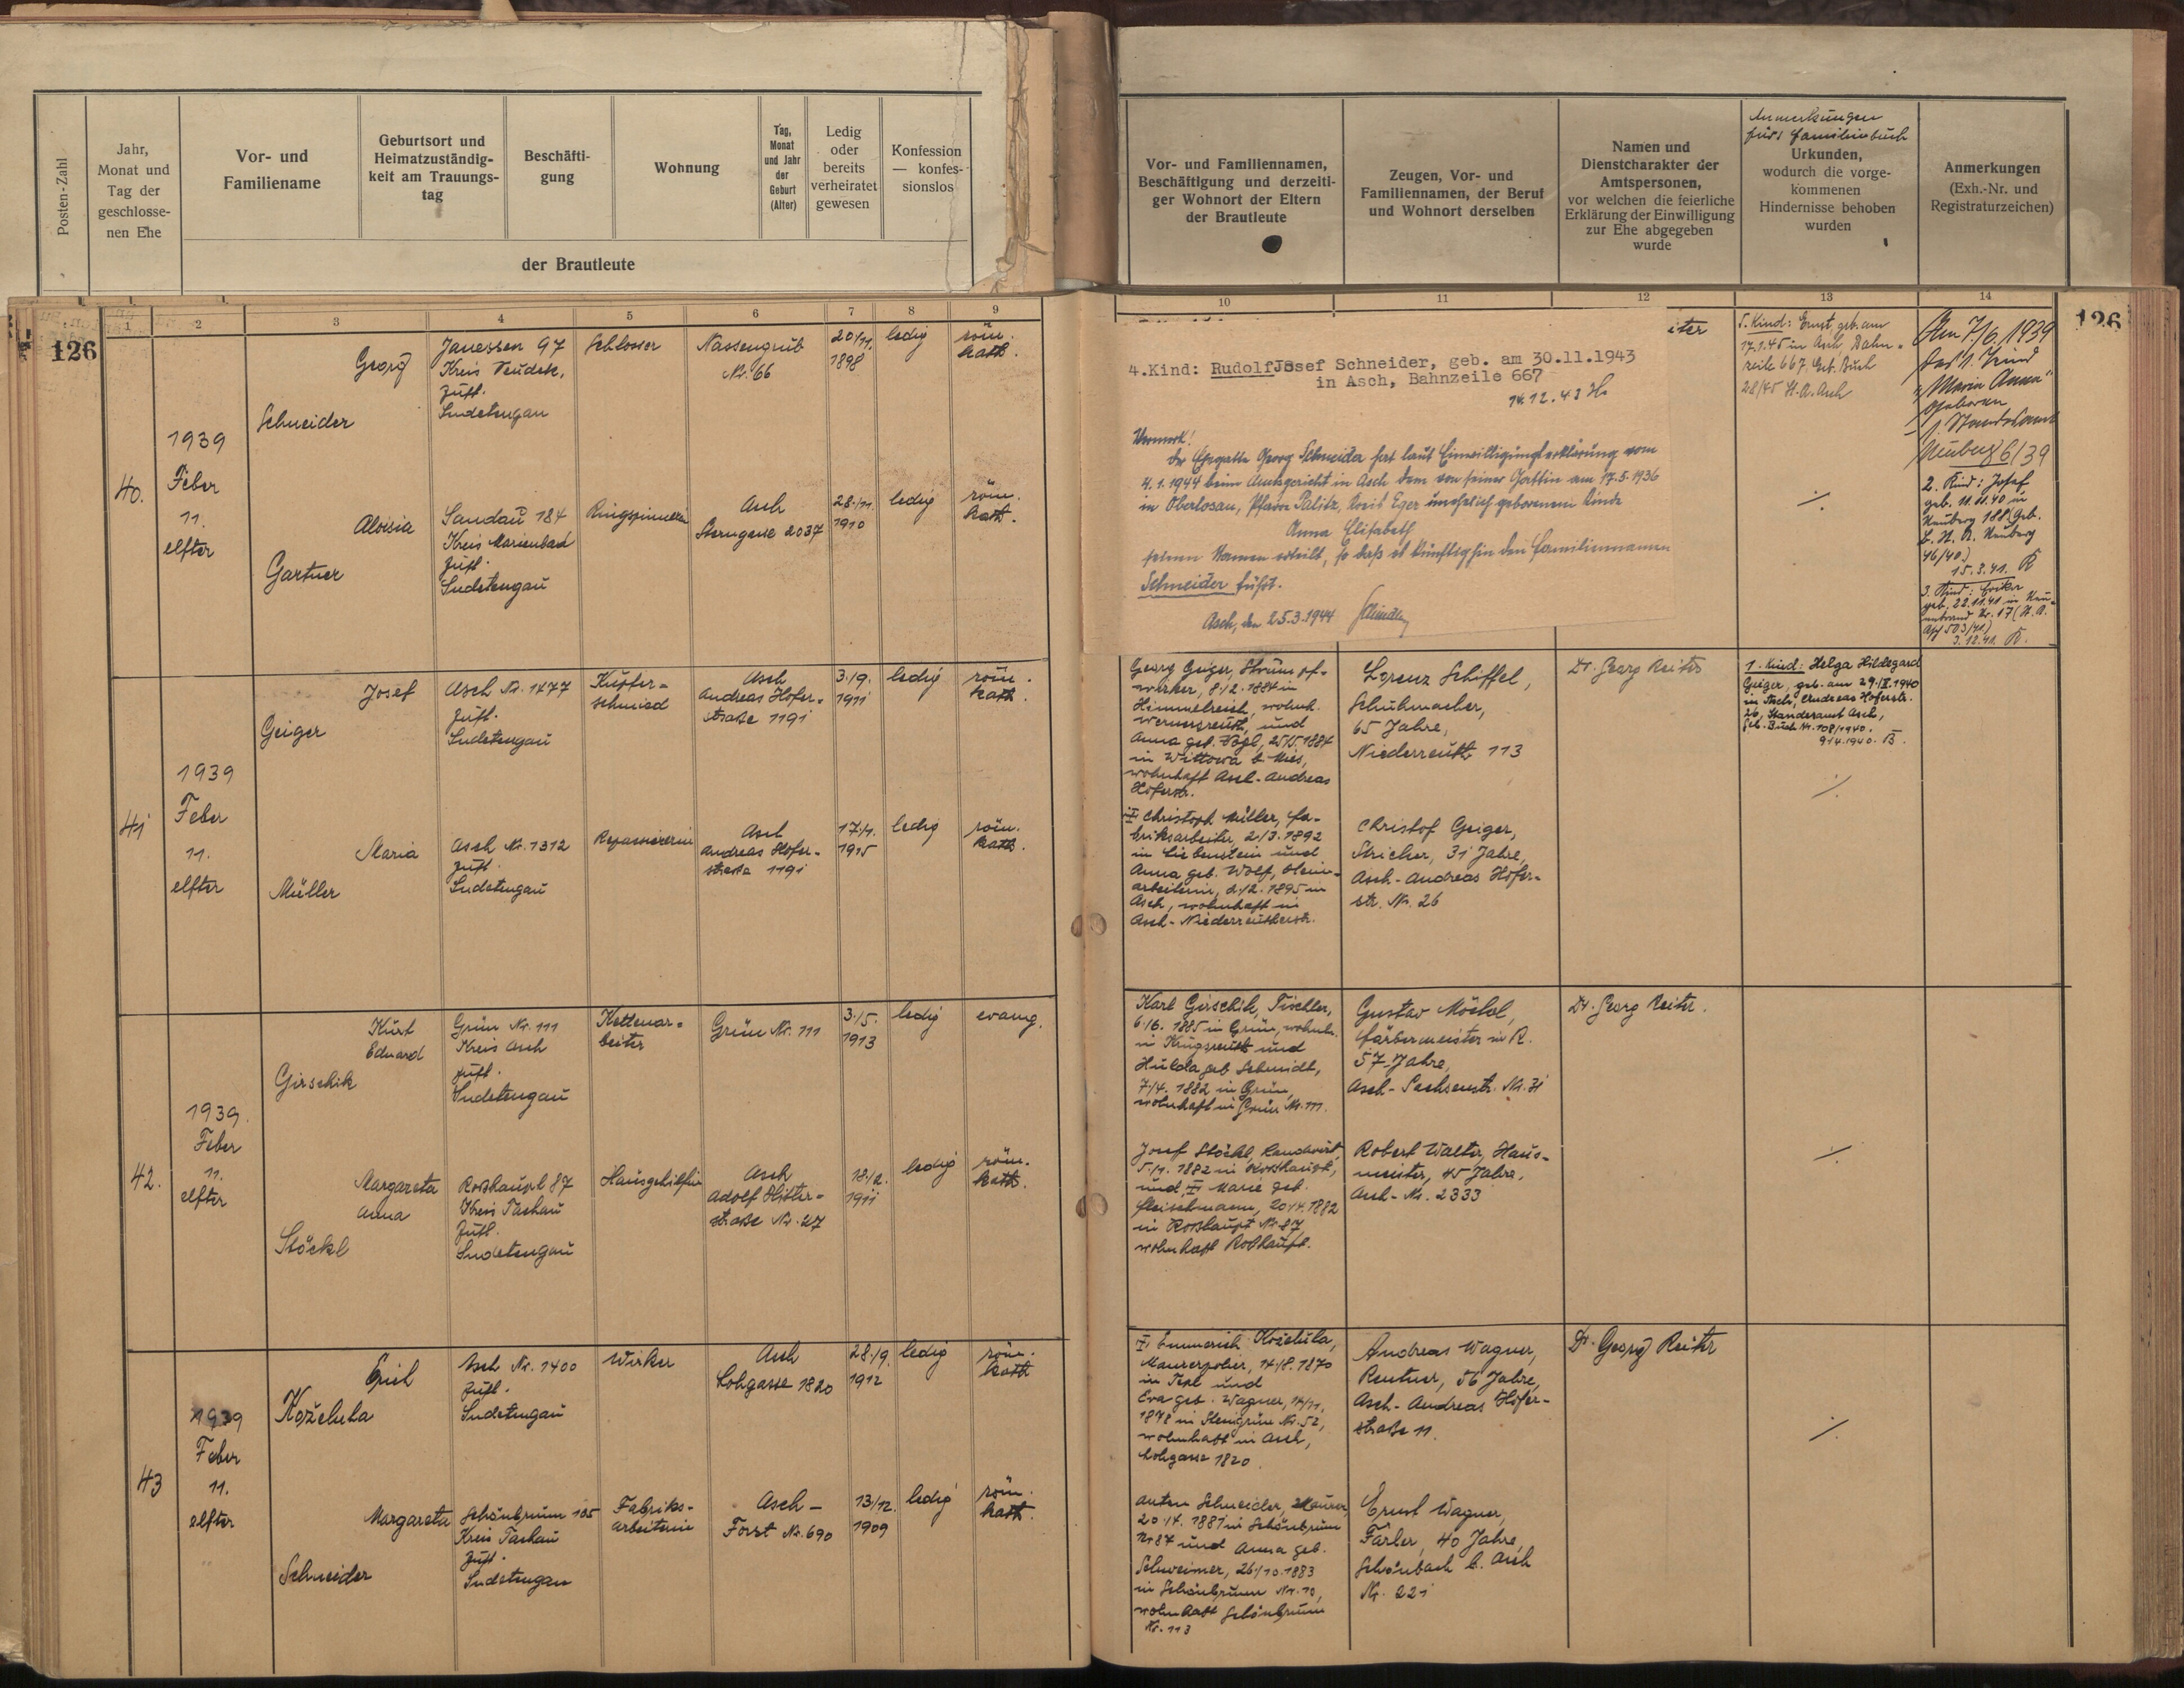 Posten-Zahl
Jahr,
Monat und
Tag der
geschlosse-
nen Ehe
Vor- und
Familiename
Geburtsort und
Heimatzuständig-
keit am Trauungs-
tag
Beschäfti-
gung
Wohnung
Tag,
Monat
und Jahr
der
Geburt
(Alter)
Ledig
oder
bereits
verheiratet
gewesen
Konfession
— konfes-
sionslos
der Brautleute
Vor- und Familiennamen,
Beschäftigung und derzeiti-
ger Wohnort der Eltern
der Brautleute
Zeugen, Vor- und
Familiennamen, der Beruf
und Wohnort derselben
Namen und
Dienstcharakter der
Amtspersonen,
vor welchen die feierliche
Erklärung der Einwilligung
zur Ehe abgegeben
wurde
Anmerkungen
fürs Familienbuch
Urkunden,
wodurch die vorge-
kommenen
Hindernisse behoben
wurden
Anmerkungen
(Exh.-Nr. und
Registraturzeichen)
1 2 3 4 5 6 7 8 9
10 11 12 13 14
126
126
40.
1939
Feber
11.
elfter
Georg
Schneider
Janessen 97
Kreis Neudek,
zust.
Sudetengau
Schlosser
Nassengrub
Nr. 66
20/11.
1898
ledig
röm.
kath.
Aloisia
Gartner
Sandau 184
Kreis Marienbad
zust.
Sudetengau
Ringspinnerin
Asch
Sterngasse 2037
28./11.
1910
ledig
röm.
kath.
4.Kind: Rudolf Josef Schneider, geb. am 30.11.1943
in Asch, Bahnzeile 667
14.12.43
Vermerk!
Der Ehegatte Georg Schneider hat laut Einwilligungserklärung vom
4.1.1944 beim Amtsgericht in Asch dem von seiner Gattin am 17.5.1936
in Oberlosau, Pfarre Palitz, Kreis Eger unehelich geborenen Kinde
Anna Elisabeth
seinen Namen erteilt, so daß es künftighin den Familiennamen
Schneider führt.
Asch, den 25.3.1944
iter
5. Kind: Ernst, geb. am
17.1.45 in Asch Bahn-
zeile 667, Geb. Buch
28/45 St. A. Asch
./.
Am 7./6. 1939
das 1. Kind
"Maria Anna"
geboren
Standesamt
Neuberg 6/39
2. Kind: Josef
geb. 11.11.40 in
Neuberg 188 (Geb.
b. St. A. Neuberg
46/40)
15.3.41. R
3. Kind: Erika
geb. 22.11.41 in Neu-
enbrand Nr. 17 (St. A.
Asch 503/41)
3.12.41. R.
41
1939
Feber
11.
elfter
Josef
Geiger
Asch Nr. 1477
zust.
Sudetengau
Kupfer-
schmied
Asch
Andreas Hofer-
strasse 1191
3./9.
1911
ledig
röm.
kath.
Maria
Müller
Asch Nr. 1312
zust.
Sudetengau
Repassiererin
Asch
Andreas Hofer-
strasse 1191
17/1.
1915
ledig
röm.
kath.
Georg Geiger, Strumpf-
wirker, 8./2. 1884 in
Himmelreich, wohnh.
Wernersreuth, und
Anna geb. Vogl, 25/5. 1884
in Wittowa b. Mies,
wohnhaft Asch-Andreas
Hoferstr.
Christoph Müller, Fa-
briksarbeiter, 2./3. 1892
in Liebenstein und
Anna geb. Wolf, Heim-
arbeiterin, 2./2. 1895 in
Asch, wohnhaft in
Asch-Niederreutherstr.
Lorenz Schiffel,
Schuhmacher,
65 Jahre,
Niederreuth 113
Christof Geiger,
Stricker, 31 Jahre,
Asch-Andreas Hofer-
str. Nr. 26
Dr. Georg Reiter
1. Kind: Helga Hildegard
Geiger, geb. am 29./II 1940
in Asch, Andreas Hoferstr.
26, Standesamt Asch,
Geb. Buch Nr. 108/1940.
9/4.1940. B.
./.
42.
1939.
Feber
11.
elfter
Kurt
Eduard
Girschik
Grün Nr. 111
Kreis Asch
zust.
Sudetengau
Kettenar-
beiter
Grün Nr. 111
3./5.
1913
ledig
evang.
Margareta
Anna
Stöckl
Roßhaupt 87
Kreis Tachau
zust.
Sudetengau
Hausgehilfin
Asch
Adolf Hitler-
straße Nr. 27
18./2.
1911
ledig
röm.
kath.
Karl Girschik, Tischler,
6./6. 1885 in Grün, wohnh.
in Krugsreuth und
Hulda geb. Schmidt,
7/4. 1882 in Grün,
wohnhaft in Grün Nr. 111.
Josef Stöckl, Landwirt,
5./1. 1882 in Roßhaupt,
und Marie geb.
Fleischmann, 20/4. 1882
in Roßhaupt Nr. 87,
wohnhaft Roßhaupt.
Gustav Möckl,
Färbermeister in R.
57 Jahre,
Asch-Sachsenstr. Nr. 31
Robert Walter, Haus-
meister, 45 Jahre,
Asch-Nr. 2333
Dr. Georg Reiter.
./.
43
1939
Feber
11.
elfter
Erich
Koželuha
Asch Nr. 1400
zust.
Sudetengau
Wirker
Asch
Lohgasse 1820
28./9.
1912
ledig
röm.
kath
Margareta
Schneider
Schönbrunn 105
Kreis Tachau
zust.
Sudetengau
Fabriks-
arbeiterin
Asch-
Forst Nr. 690
13/12.
1909
ledig
röm.
kath.
Emmerich Koželuha,
Maurerpolier, 14/8. 1870
in Tepl und
Eva geb. Wagner, 14/11.
1878 in Steingrün Nr. 52,
wohnhaft in Asch,
Lohgasse 1820
Anton Schneider, Maurer,
20/4. 1881 in Schönbrunn
Nr 87 und Anna geb.
Schweimer, 26/10. 1883
in Schönbrunn Nr. 10,
wohnhaft Schönbrunn
Nr. 113
Andreas Wagner,
Rentner, 56 Jahre,
Asch-Andreas Hofer-
straße 11.
Ernst Wagner,
Färber, 40 Jahre,
Schönbach b. Asch
Nr. 221
Dr. Georg Reiter
./.